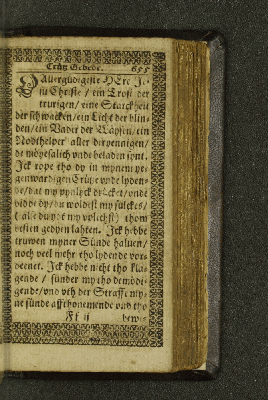 Crütz Gebede. 655
O Allergnädigeste HEre Je-
su Christe / ein Trost der
trurigen / eine Starckheit
der schwacken / ein Licht der blin-
den / ein Vader der Waysen / ein
Nodthelper aller derjennigen /
de möyesalich unde beladen synt.
Ick rope tho dy in mynem ye-
genwardigen Crütze unde lyden-
de / dat my pynlyck drücket / unde
bidde dy / du woldest my sülckes /
( alse du yot my uplechst ) thom
besten gedyen lahten. Ick hebbe
truwen myner Sünde haluen /
noch veel mehr tho lydende vor-
deenet. Ick hebbe nicht tho kla-
gende / sünder my tho demödi-
gende / und vth der Straffe my-
ne sünde afftho nemende und tho
Ff ij bewe-